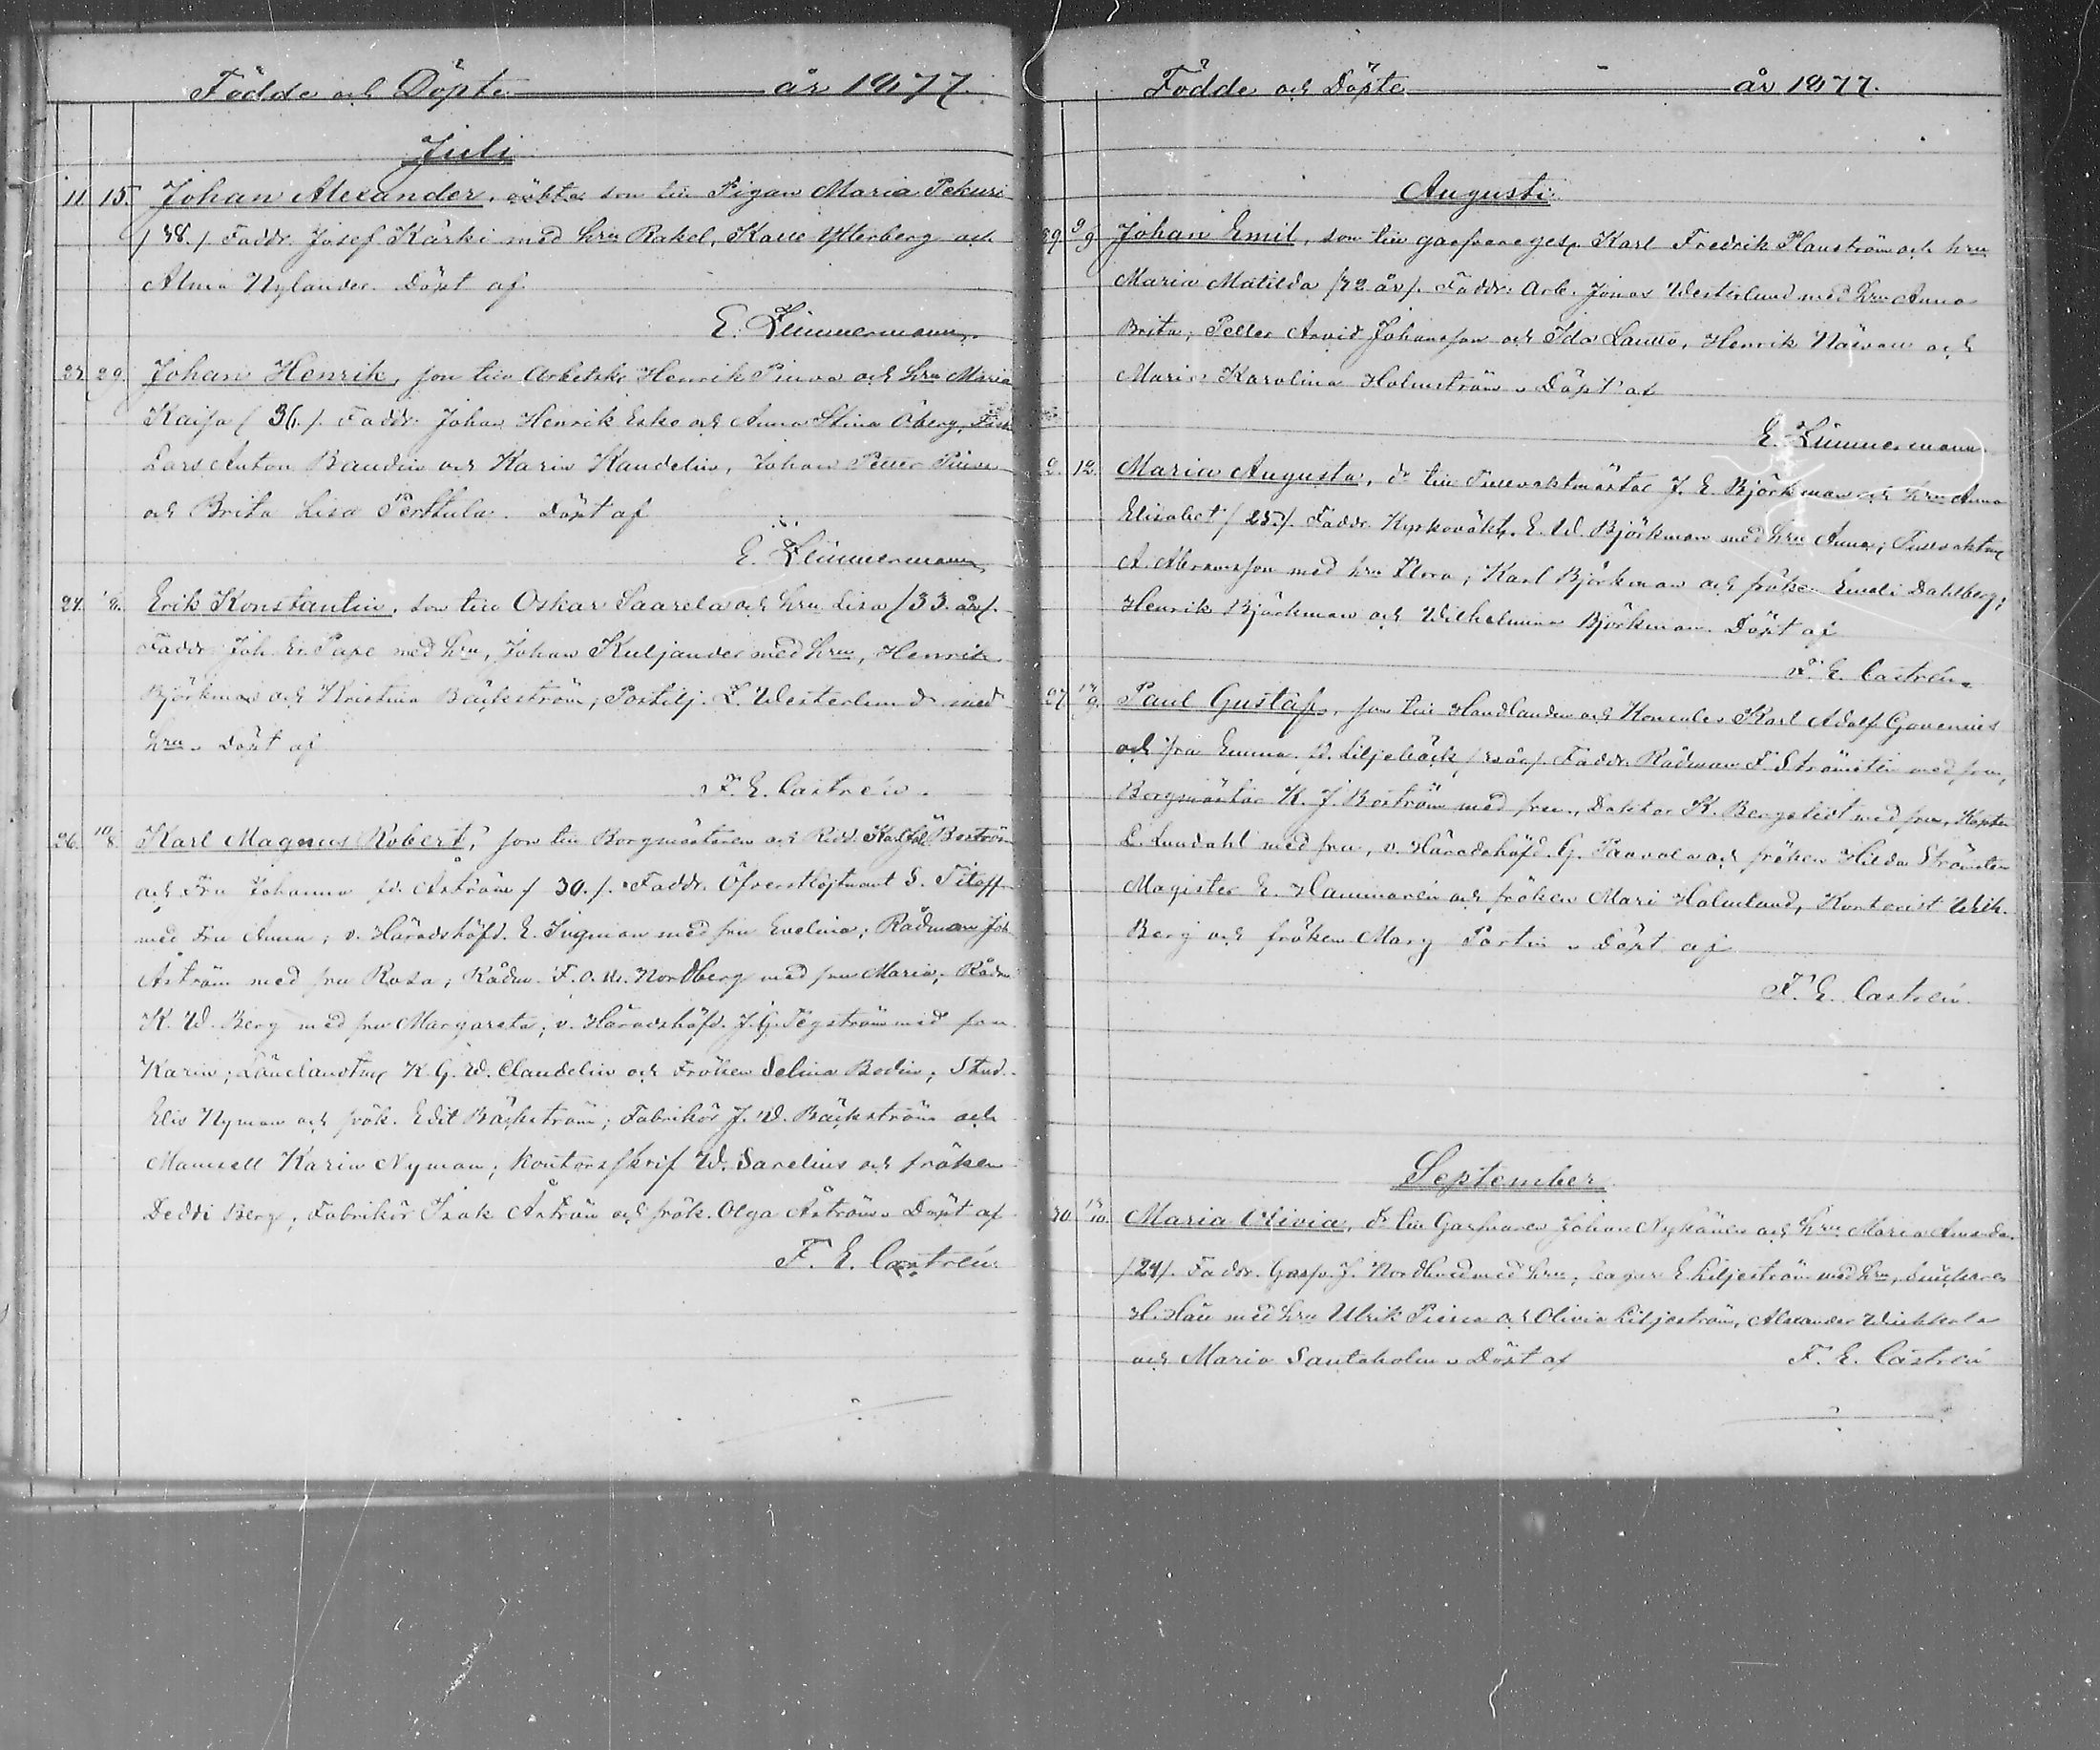 Födde och Döpte år 1877.
Juli
11 15. Johan Alexander, oäkta son till Pigan Maria Pekuri
/38./ Faddr. Josef Kärki med hru Rakel, Kalle Ytterberg och
Alma Nylander. Döpt af
E. Zimmermann.
27 29. Johan Henrik, son till Arbetsk. Henrik Pinva och hru Maria
Kaisa /36./ Faddr. Johan Henrik Esko och Anna Stina Öberg,
Lars Anton Baudin och Karin Kandelin, Johan Petter
och Brita Lisa Perttula. Döpt af
E. Zimmermann
24. Erik Konstantin, son till Oskar Saarela och hru Lisa /33. år/.
Faddr. Joh. Er. Pape med hru, Johan Kuljander med hru, Henrik
Björkman och Kristina Bäckström, Postilj. L. Westerlund med
hru. Döpt af
F. E. Castrén.
26. 10/8. Karl Magnus Robert, son till Borgmästaren och Ridd. Boström
och Fru Johanna fd. Åström /30./. Faddr. Öfverstlöjtnant S. Titoff
med Fru Anna; v. Häradshöfd. E. Ingman med fru Evelina; Rådman Joh
Åström med fru Rosa; Rådm. F. O. W. Nordberg med fru Maria; Rådm
K. W. Berg med fru Margareta; v. Häradshöfd. J. G. Pegström med fru
Karin; K. G. W. Claudelin och Fröken Selina Bodin; Stud.
Elis Nyman och frök. Edit Bäckström; Fabrikör J. W. Bäckström och
Mamsell Karin Nyman; Kontorsskrif W. Sarelius och fröken
Deddi Berg; Fabrikör Isak Åström och frök. Olga Åström. Döpt af
F. E. Castrén
Födde och Döpte år 1877.
Augusti
9/9 Johan Emil, son till garfvareges. Karl Fredrik Planström och hru
Maria Matilda /42 år/. Faddr: Arb. Jonas Westerlund med hru Anna
Brita, Petter Arvid Johansson och Ida Lautto, Henrik Näsvau och
Maria Karolina Holmström. Döpt af
E. Zimmermann
12. Maria Augusta, dr till Tullvaktmästar J. E. Björkman och hru Anna
Elisabet /25./. Faddr. Kyrkovakt. E. W. Björkman med hru Anna; Tullvaktm
A. Abramsson med hru Flora; Karl Björkman och fröken Emeli Dahlberg;
Henrik Björkman och Wilhelmina Björkman. Döpt af
F. E. Castrén.
27 Paul Gustaf, son till Handlanden och Konsuln Karl Adolf Govenius
och fru Emma, fd. Liljebäck. Faddr. Rådman F Strömsten med fru,
Borgmästar K. J. Boström med fru, Doktor K. Bergstedt med fru, Kapten
L. Lundahl med fru, v. Häradshöfd. G. Paavola och fröken Hilda Strömsten
Magister E. Hammarén och fröken Mari Holmlund, Kontorist Wilh.
Berg och fröken Mary Portin. Döpt af
F. E. Castrén.
September
30 Maria Olivia, dr till Garfvaren Johan Nykänen och hru Maria Amanda
/24/. Faddr. Garfv. J. Nordlund med hru; E. Liljeström med hru,
H. med hru Ulrik och Olivia Liljeström, Alexander
och Maria Santaholm. Döpt af F. E. Castrén